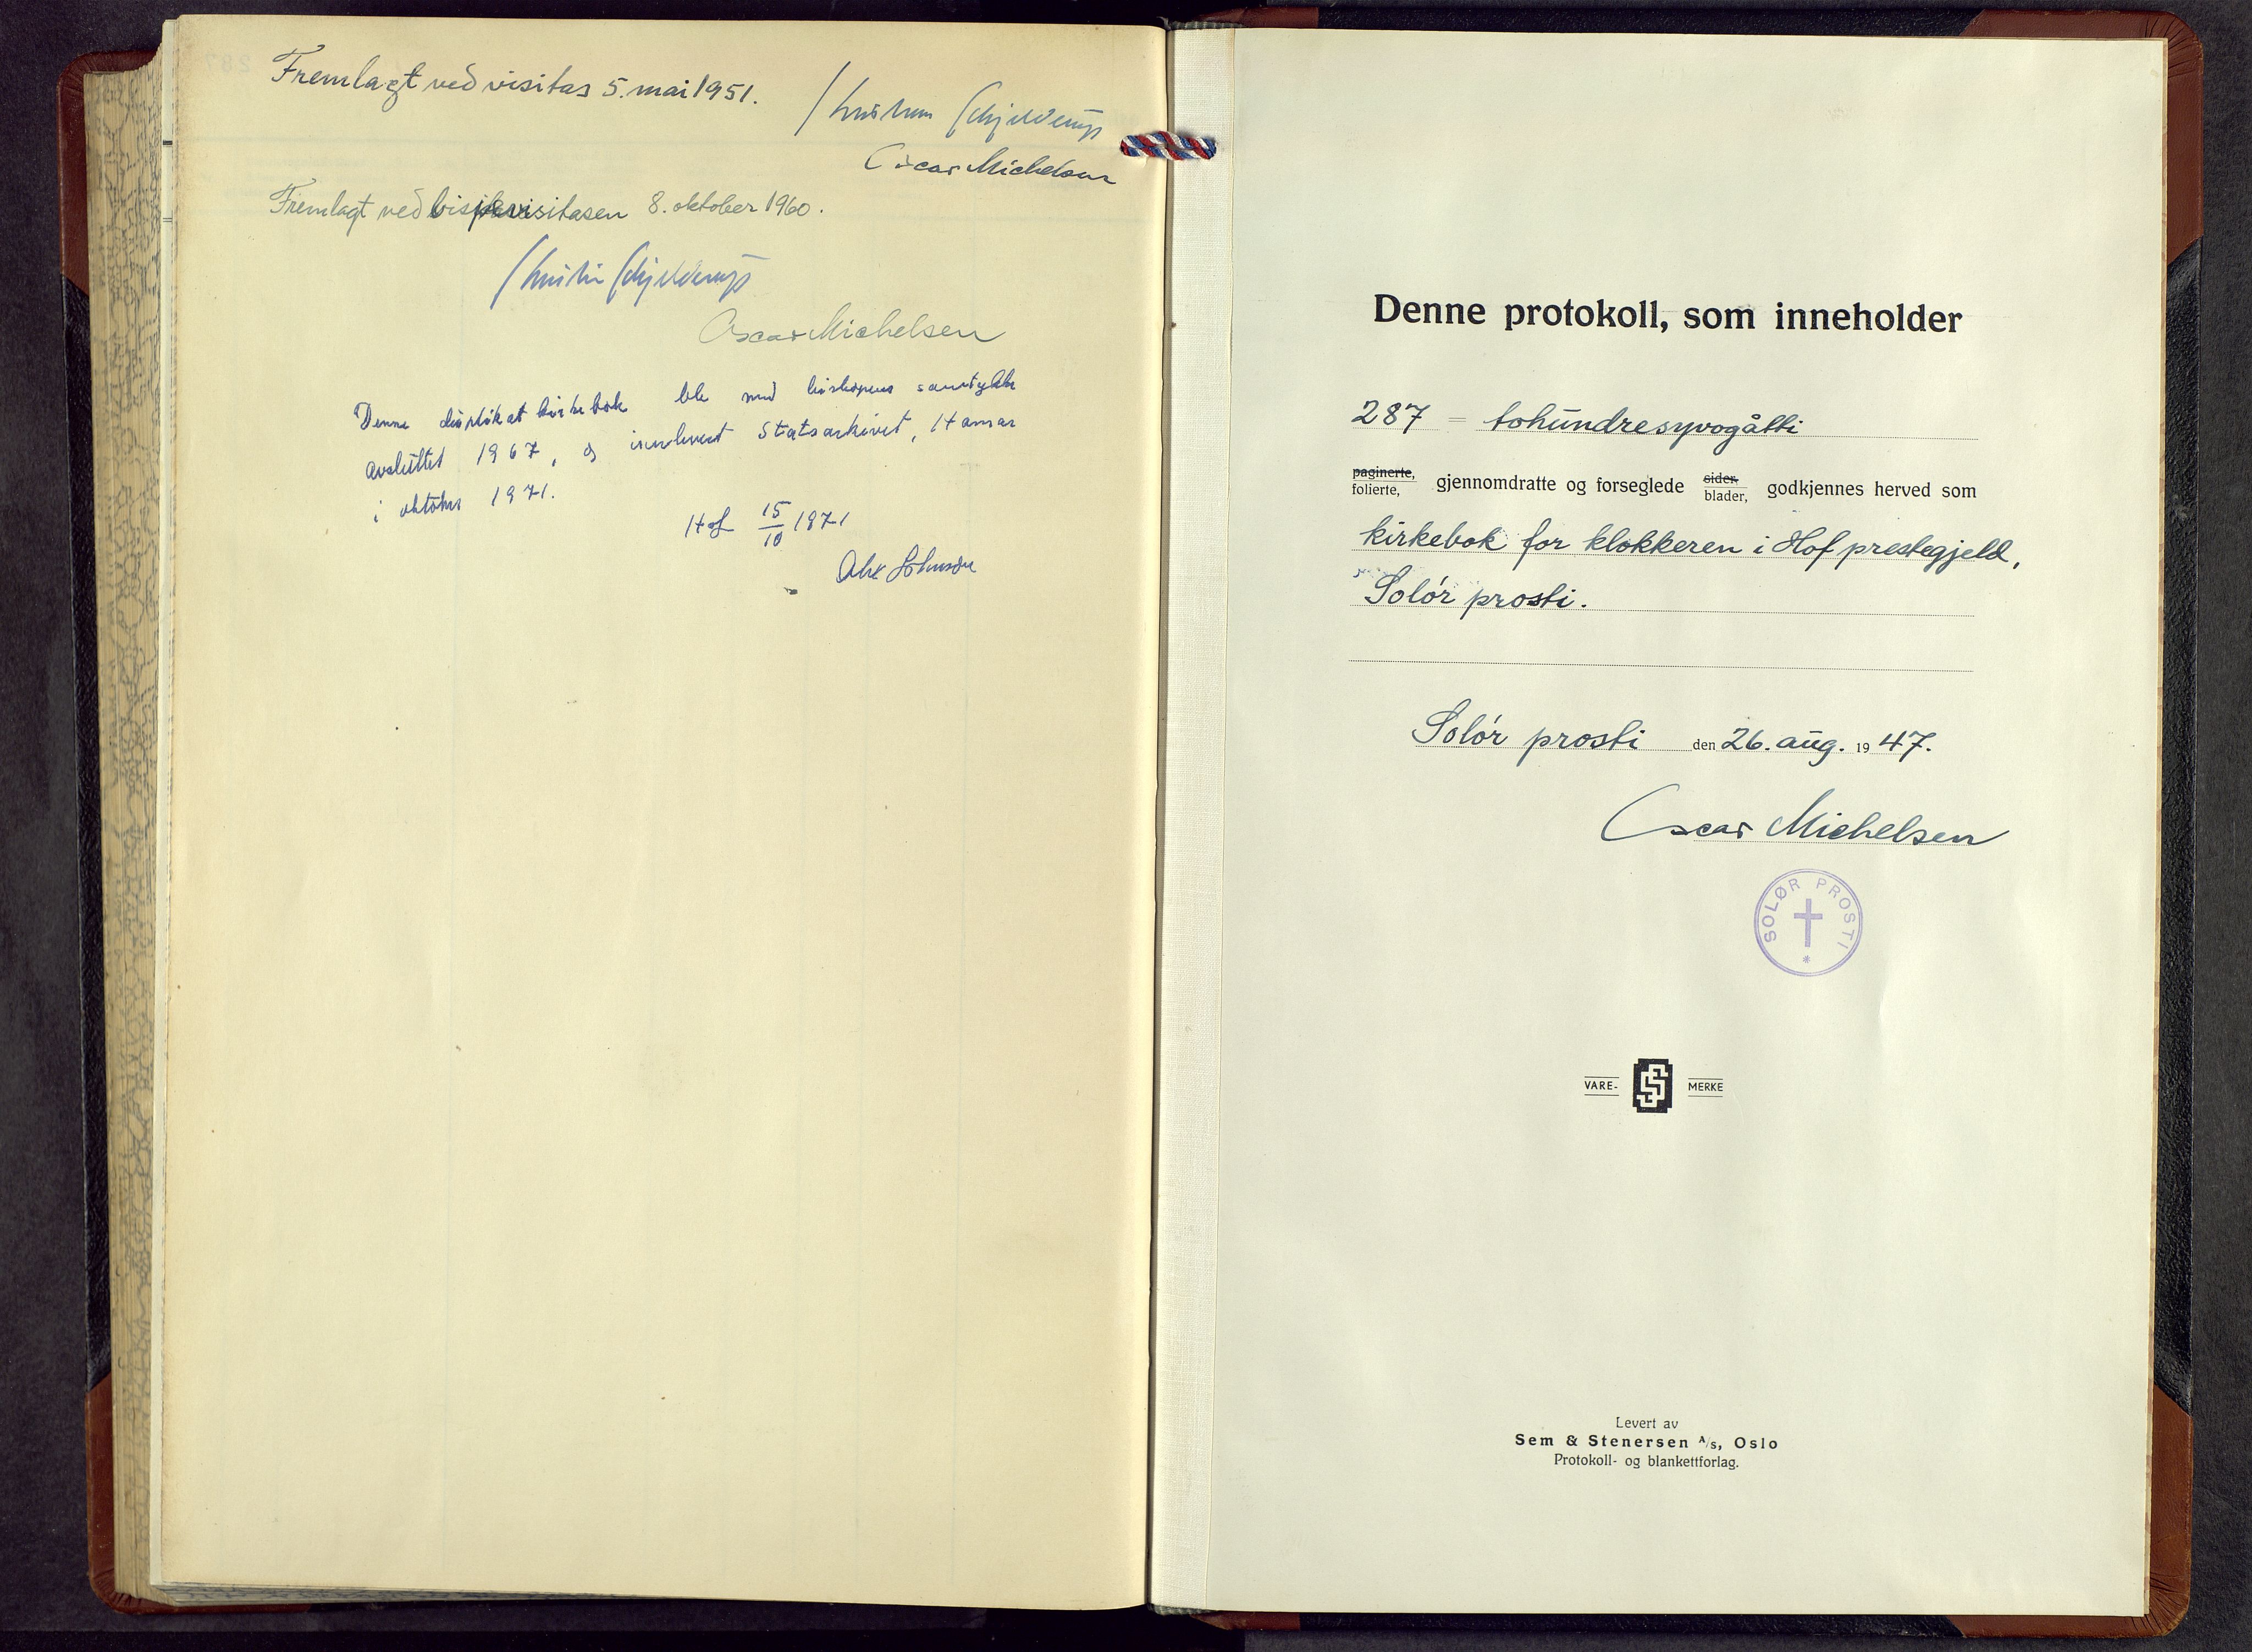 Fremlagt ved visitas 5. mai 1951.
Kristian Schjelderup
Oscar Michelsen
Fremlagt ved bispevisitasen 8. oktober 1960.
Kristian Schjelderup
Oscar Michelsen
Denne duplikat kirkebok ble med biskopens samtykke
avsluttet 1967, og innlevert Statsarkivet, Hamar
i oktober 1971.
Hof 15/10 1971
Denne protokoll, som inneholder
287 = tohundresyvogåtti
paginerte, folierte, gjennomdratte og forseglede sider, blader, godkjennes herved som
kirkebok for klokkeren i Hof prestegjeld,
Solør prosti.
Solør prosti den 26. aug. 1947.
Oscar Michelsen
SOLØR PROSTI
VARE- MERKE
Levert av
Sem & Stenersen A/S, Oslo
Protokoll- og blankettforlag.